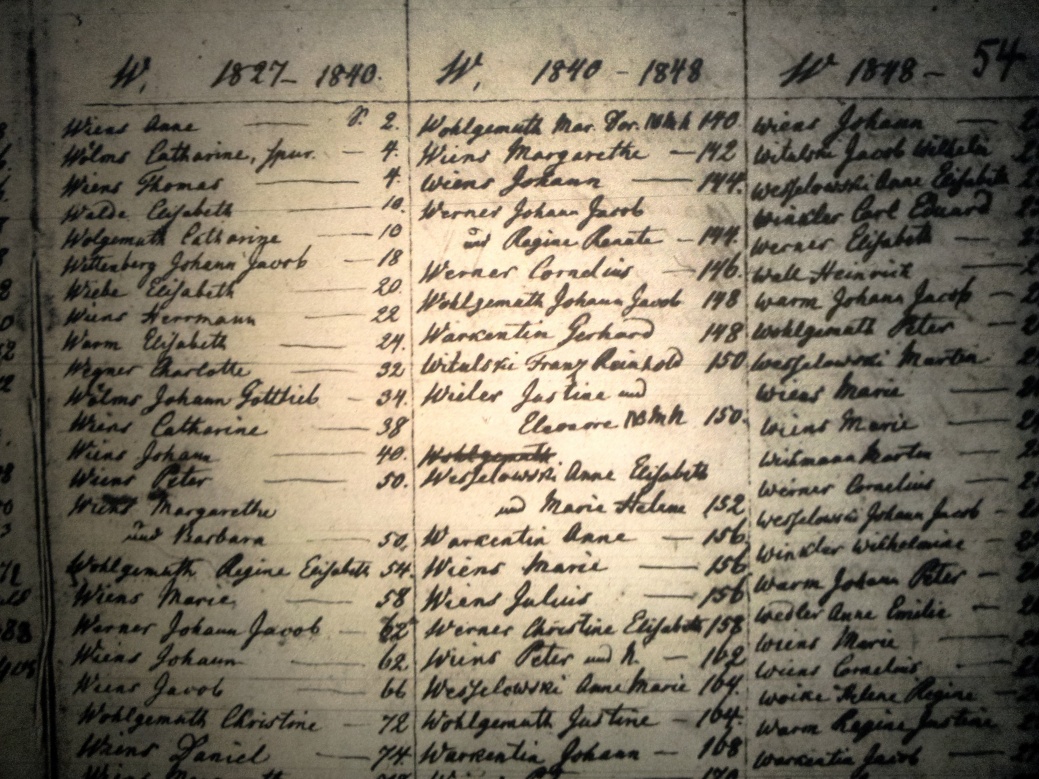 54
W, 1827- 1840.
Wiens Anne — S. 2.
Wölms Catharine, spur. — 4.
Wiens Thomas — 4.
Walde Elisabeth — 10.
Wolgemuth Catharine — 10
Wittenberg Johann Jacob — 18
Wiebe Elisabeth — 20.
Wiens Herrmann — 22
Warm Elisabeth — 24.
Wegner Charlotte — 32
Wölms Johann Gottlieb — 34.
Wiens Catharine — 38
Wiens Johann — 40.
Wiens Peter — 50.
Wiens Margarethe
und Barbara — 50.
Wohlgemuth Regine Elisabeth 54.
Wiens Marie — 58
Werner Johann Jacob — 62
Wiens Johann — 62.
Wiens Jacob — 66
Wohlgemuth Christine — 72
Wiens Daniel — 74.
W, 1840 - 1848
Wohlgemuth Mar. Dor. 140
Wiens Margarethe — 142
Wiens Johann — 144.
Werner Johann Jacob
und Regine Renate — 144.
Werner Cornelius — 146.
Wohlgemuth Johann Jacob 148
Warkentin Gerhard 148
Witulski Franz Reinhold 150
Wieler Justine und
Eleonore 150.
Wohlgemuth
Wesselowski Anne Elisabeth
und Marie Helene 152
Warkentin Anne — 156.
Wiens Marie — 156
Wiens Julius — 156
Werner Christine Elisabeth 158
Wiens Peter und — 162
Wesselowski Anne Marie 164.
Wohlgemuth Justine — 164.
Warkentin Johann — 168
W 1848 -
Wiens Johann —
Witulski Jacob Wilhelm
Wesselowski Anne Elisabeth
Winkler Carl Eduard
Werner Elisabeth —
Wall Heinrich —
Warm Johann Jacob —
Wohlgemuth Peter —
Wesselowski Martin
Wiens Marie —
Wiens Marie —
Martin
Werner Cornelius —
Wesselowski Johann Jacob —
Winkler Wilhelmine —
Warm Johann Peter —
Wedler Anne Emilie —
Wiens Marie —
Wiens Cornelius —
Helene Regine
Warm Regine Justine
Warkentin Jacob —